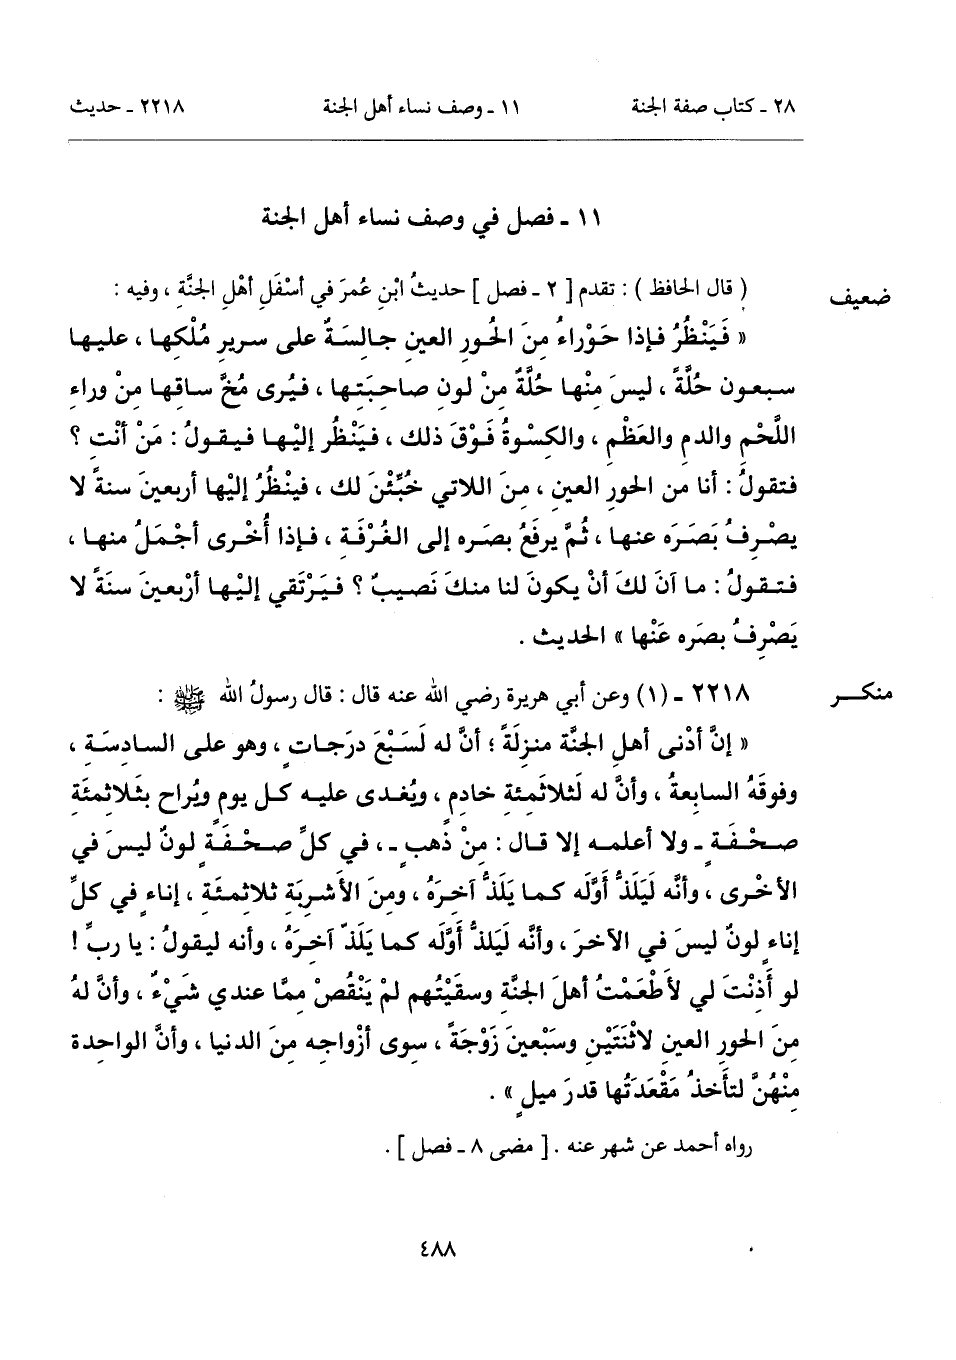 ٢٨ ـ كتاب صفة الجنة ١١ ـ وصف نساء أهل الجنة ٢٢١٨ ـ حديث
١١ ـ فصل في وصف نساء أهل الجنة
ضعيف ( قال الحافظ ) : تقدم [ ٢ ـ فصل ] حديثُ ابْنِ عُمرَ في أسْفَلِ أهْلِ الجنَّةِ ، وفيه :
« فَيَنْظُرُ فإذا حَوْراءُ مِنَ الحُورِ العينِ جالسَةٌ على سريرِ مُلْكِها ، عليها
سبعون حُلَّةً ، ليسَ مِنْها حُلَّةٌ مِنْ لونِ صاحبَتِها ، فيُرى مُخُّ ساقِها مِنْ وراءِ
اللَّحْمِ والدمِ والعَظْمِ ، والكِسْوةُ فَوْقَ ذلك ، فيَنْظُر إليْها فيقولُ : مَنْ أنْتِ ؟
فتقولُ : أنا من الحورِ العينِ ، مِنَ اللاتي خُبِّئْنَ لك ، فينْظُرُ إليْها أربعينَ سنةً لا
يصْرِفُ بَصَرَه عنها ، ثُمَّ يرفَعُ بصَره إلى الغُرْفَةِ ، فإذا أُخْرى أجْمَلُ منها ،
فتقولُ : ما آنَ لكَ أنْ يكونَ لنا منكَ نَصيبٌ ؟ فيَرْتَقي إليْها أرْبعينَ سنَةً لا
يَصْرِفُ بصَره عَنْها » الحديث .
منكر ٢٢١٨ ـ (١) وعن أبي هريرة رضي الله عنه قال : قال رسولُ الله ﷺ :
« إنَّ أدْنى أهلِ الجنَّة منزلَةً ؛ أنَّ له لَسَبْعَ درَجاتٍ ، وهو على السادسَةِ ،
وفوقَهُ السابعةُ ، وأنَّ له لَثلاثَمئة خادمٍ ، ويُغدى عليه كل يومٍ ويُراح بثَلاثمئَةِ
صحْفَةٍ ـ ولا أعلمه إلا قال : مِنْ ذهبٍ ـ ، في كلِّ صحْفَةٍ لونٌ ليسَ في
الأخْرى ، وأنَّه لَيَلَذُّ أوَّلَه كما يَلَذُّ آخرَهُ ، ومِنَ الأشرِبَةِ ثلاثمئَةِ ، إناءٍ في كلِّ
إناءٍ لونٌ ليسَ في الآخرَ ، وأنَّه لَيَلذُّ أوَّلَه كما يَلَذّ آخرَهُ ، وأنه ليقولُ : يا ربِّ !
لو أَذِنْتَ لي لأطْعَمْتُ أهلَ الجنَّةِ وسقَيْتُهم لمْ يَنْقُصْ ممَّا عندي شَيْءٌ ، وأنَّ لهُ
مِنَ الحُورِ العينِ لاثْنَتَيْنِ وسَبْعينَ زَوْجَةً ، سوى أزْواجِه مِنَ الدنيا ، وأنَّ الواحِدة
مِنْهُنَّ لتأخذُ مَقْعَدَتُها قدرَ ميلٍ » .
رواه أحمد عن شهر عنه . [ مضى ٨ ـ فصل ] .
٤٨٨